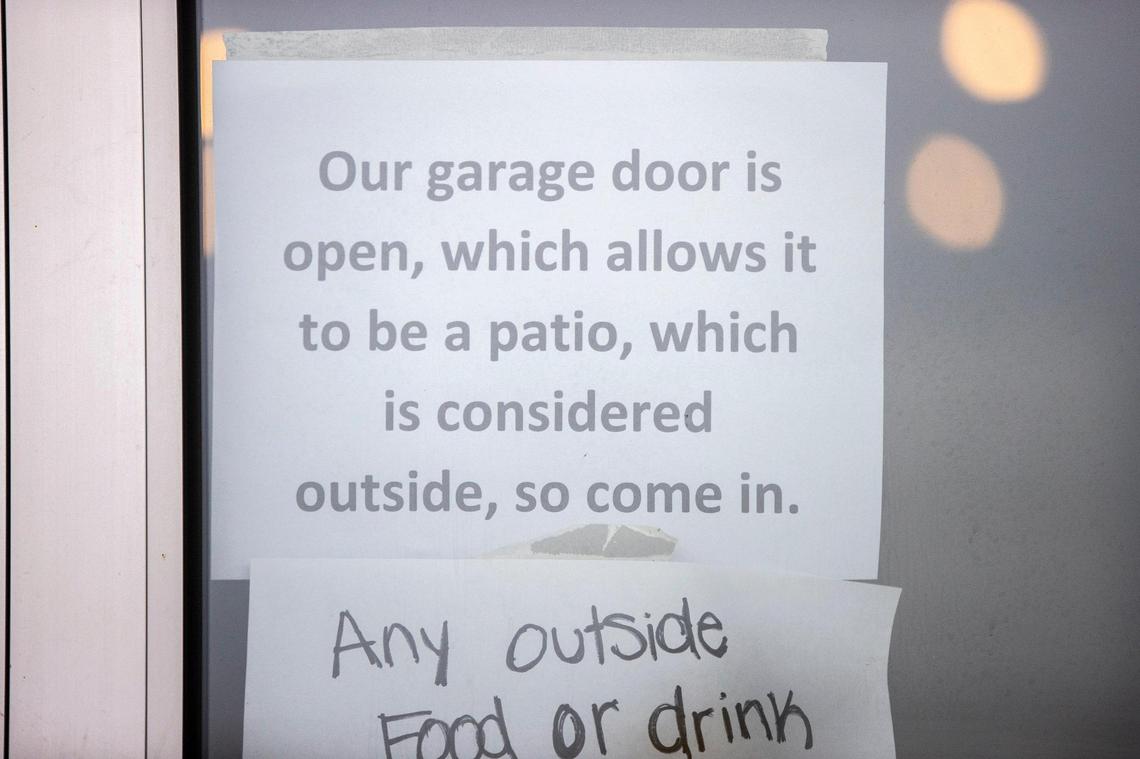 Our garage door is
open, which allows it
to be a patio, which
is considered
outside, so come in.
Any outside
Food or drink